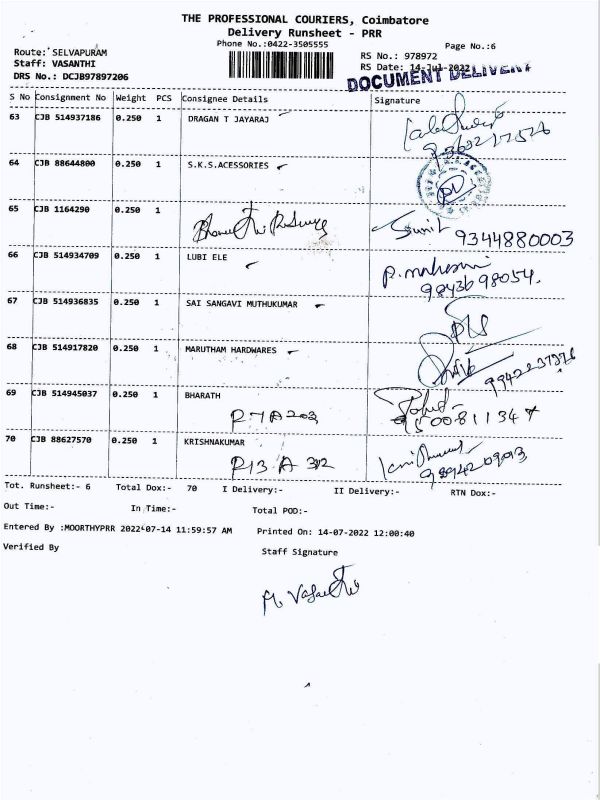 THE PROFESSIONAL COURIERS, Coimbatore
Delivery Runsheet - PRR
Phone No.:0422-3505555
Page No.:6
Route: SELVAPURAM
RS No.: 978972
Staff: VASANTHI
RS Date: 14-Jul-2022
DRS No.: DCJB97897206
DOCUMENT DELIVERY
S No Consignment No Weight PCS Consignee Details Signature
63 CJB 514937186 0.250 1 DRAGAN T JAYARAJ
64 CJB 88644800 0.250 1 S.K.S.ACESSORIES
65 CJB 1164290 0.250 1 Sumit 9344880003
66 CJB 514934709 0.250 1 LUBI ELE
9843698054.
67 CJB 514936835 0.250 1 SAI SANGAVI MUTHUKUMAR
68 CJB 514917820 0.250 1 MARUTHAM HARDWARES
69 CJB 514945037 0.250 1 BHARATH
70 CJB 88627570 0.250 1 KRISHNAKUMAR
Tot. Runsheet:- 6 Total Dox:- 70 I Delivery:- II Delivery:- RTN Dox:-
Out Time:- In Time:- Total POD:-
Entered By :MOORTHYPRR 2022-07-14 11:59:57 AM Printed On: 14-07-2022 12:00:40
Verified By Staff Signature